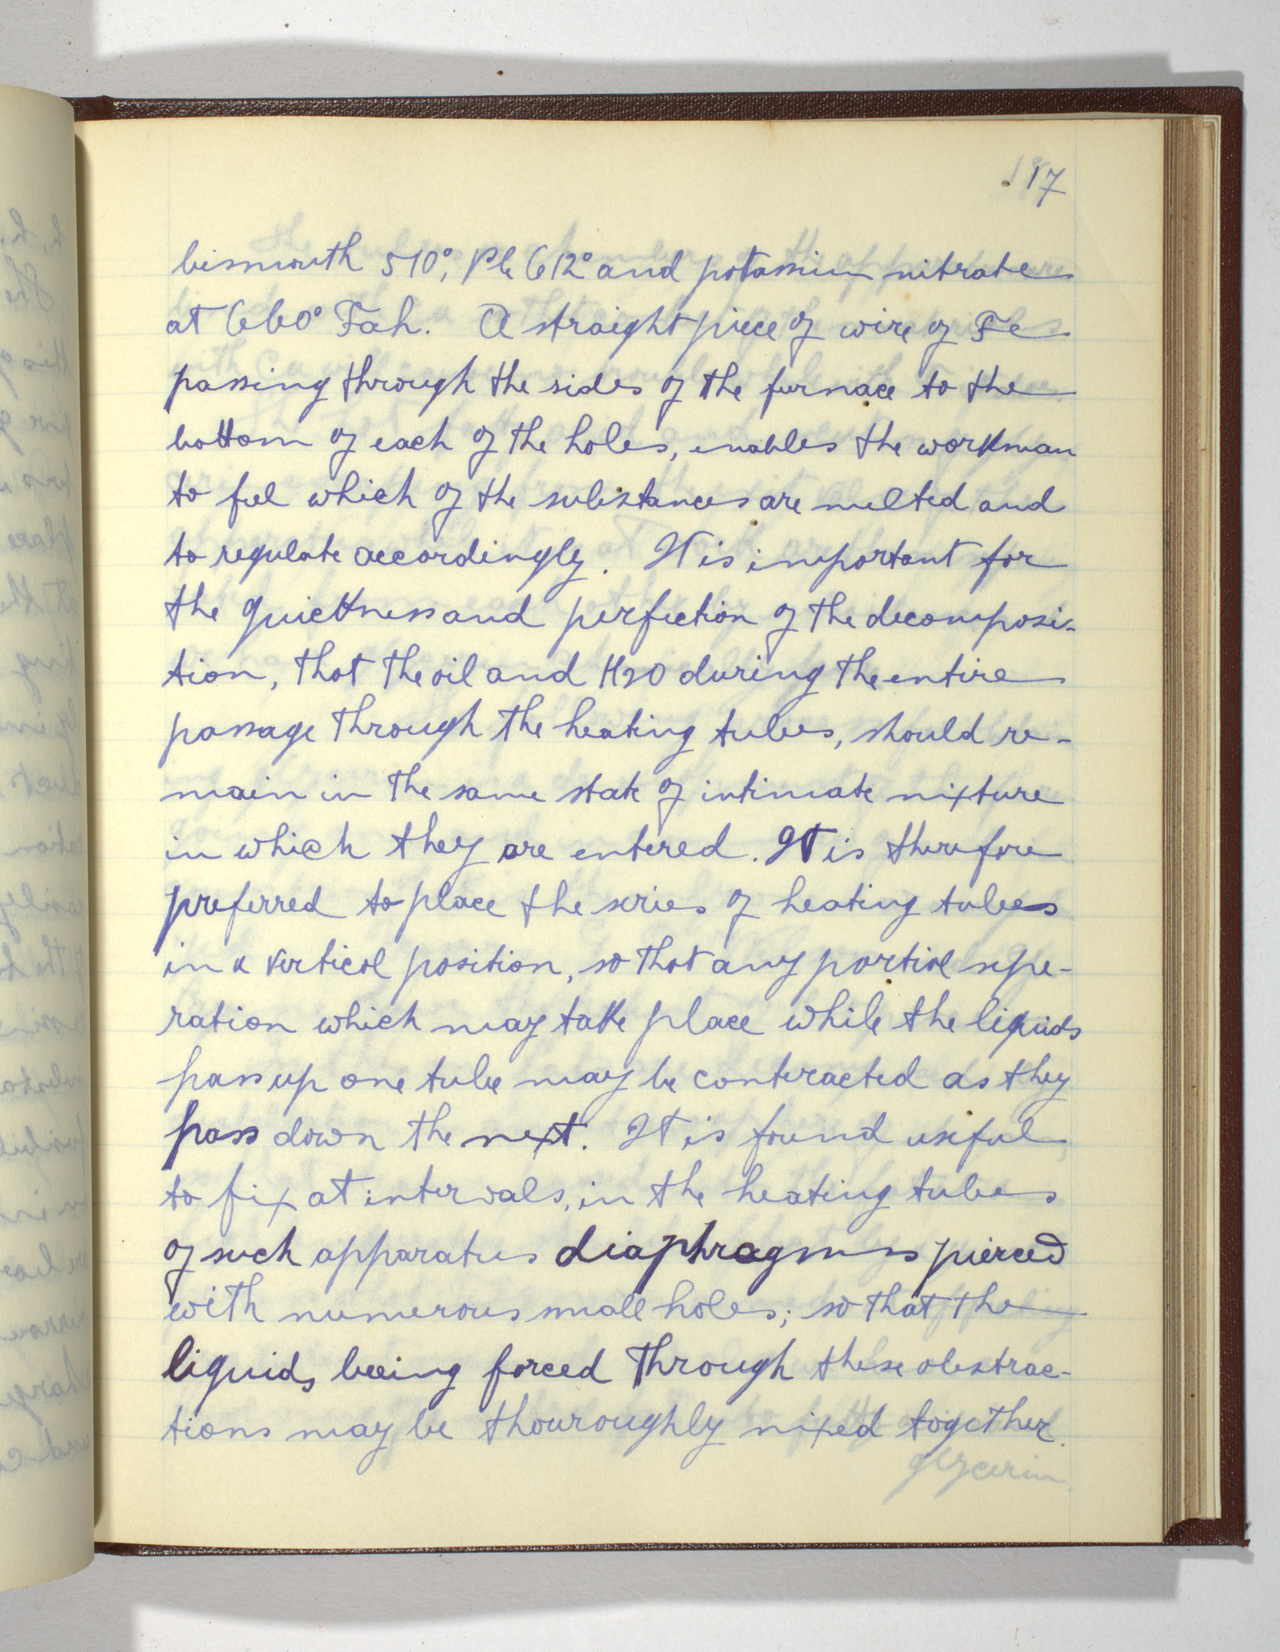 117
bismouth 510°, Pb 612° and potassium nitrate
at 660° Fah. A straight piece of wire of Fe
passing through the sides of the furnace to the
bottom of each of the holes, enables the workman
to feel which of the substances are melted and
to regulate accordingly. It is important for
the quicktness and perfection of the decomposi-
tion, that the oil and H2O during the entire
passage through the heating tubes, should re-
main in the same state of intimate mixture
in which they are entered. It is therefore
preferred to place the series of heating tubes
in a vertical position, so that any partial sepe-
ration which may take place while the liquids
pass up one tube may be conteracted as they
pass down the next. It is found useful
to fix at intervals, in the heating tubes
of such apparatus diaphragms pierced
with numerous small holes; so that the
liquids beeing forced through these obstrac-
tions may be thouroughly mixed together.
glycerin